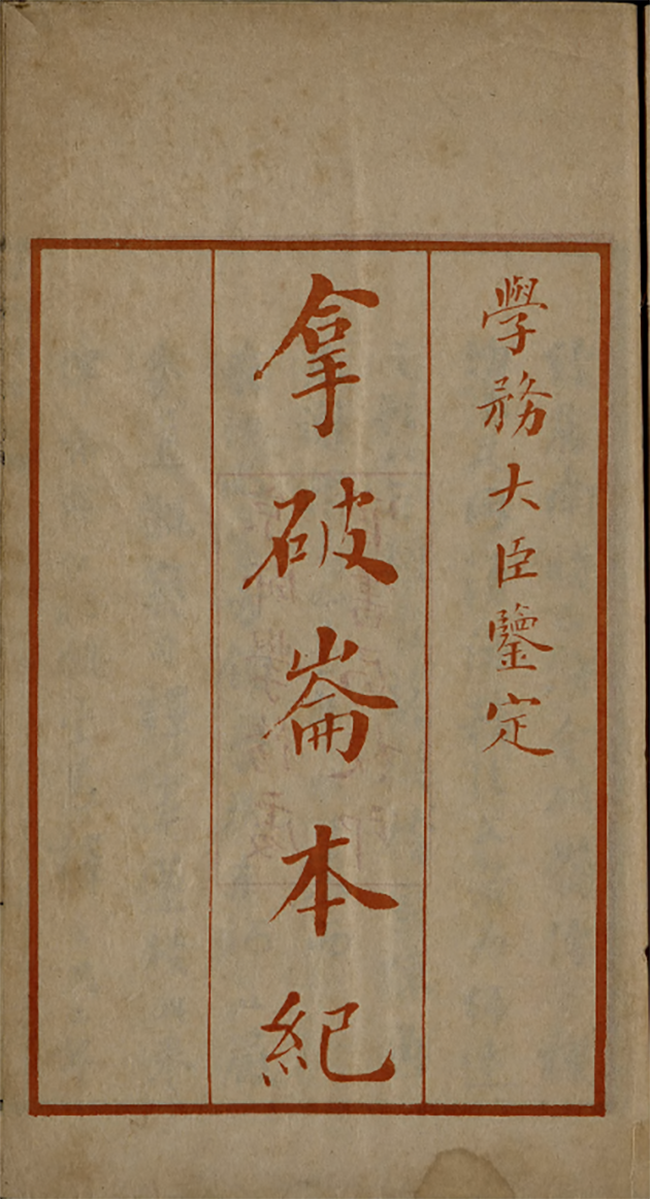 學務大臣鑒定
拿破崙本紀